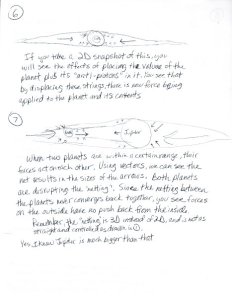 6
If you take a 2D snapshot of this, you
will see the effects of placing the volume of the
planet plus its "anti-protons" in it. You see that
by displacing these strings, there is now force being
applied to the planet and its contents
7
Jupiter
When two planets are within a certain range, their
forces act on each other. Using vectors, we can see the
net results in the sizes of the arrows. Both planets
are disrupting the "netting". Since the netting between
the planets never converges back together, you see forces
on the outside have no push back from the inside.
Remember, the "netting" is 3D instead of 2D, and is not as
straight and controlled as drawn in 1.
Yes I know Jupiter is much bigger than that